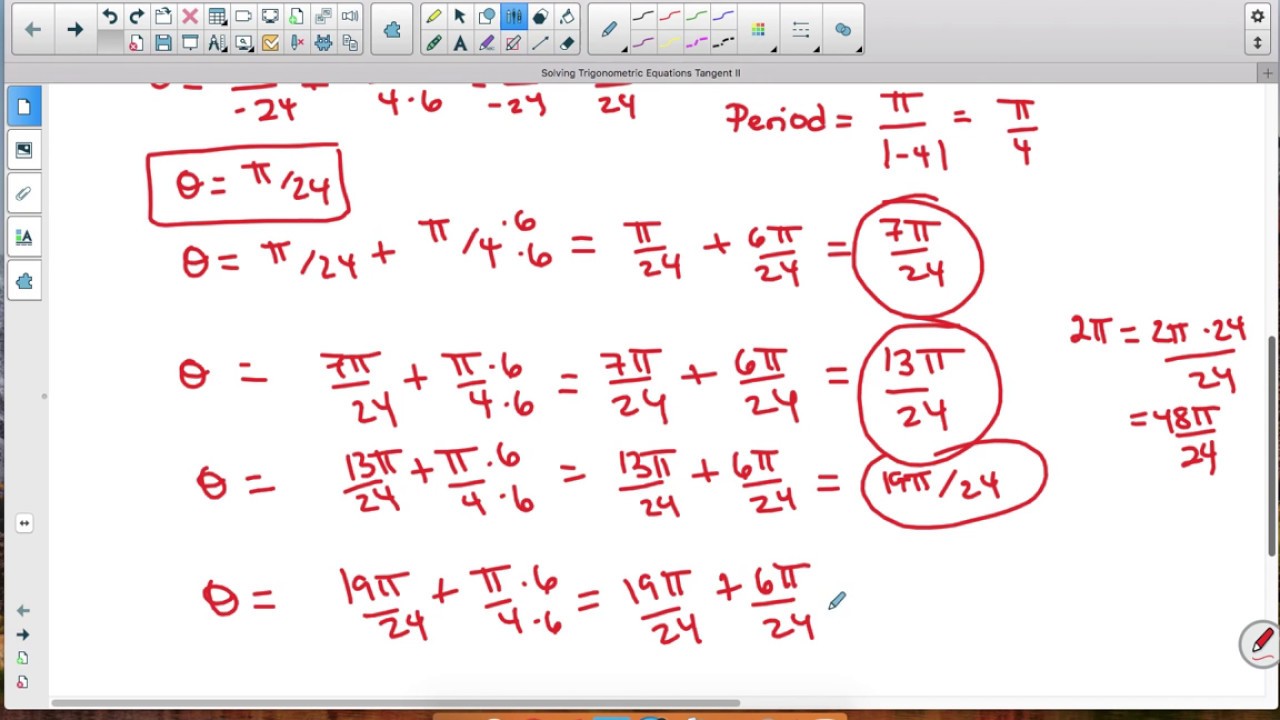 Solving Trigonometric Equations Tangent II
-24 4·6 -24 24
Period = π/|-4| = π/4
θ = π/24
θ = π/24 + π/4 ·6 ·6 = π/24 + 6π/24 = 7π/24
2π = 2π·24/24
θ = 7π/24 + π·6/4·6 = 7π/24 + 6π/24 = 13π/24
= 48π/24
θ = 13π/24 + π·6/4·6 = 13π/24 + 6π/24 = 19π/24
θ = 19π/24 + π·6/4·6 = 19π/24 + 6π/24